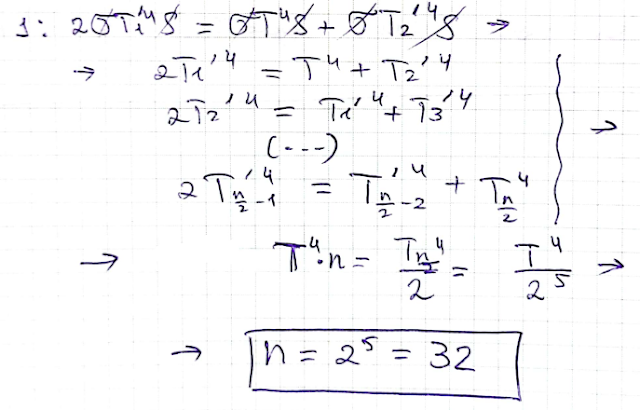 1: 2σT₁'⁴S = σT⁴S + σT₂'⁴S →
→ 2T₁'⁴ = T⁴ + T₂'⁴
2T₂'⁴ = T₁'⁴ + T₃'⁴ →
(---)
2T'⁴_{n/2-1} = T'⁴_{n/2-2} + T⁴_{n/2}
→ T⁴·n = Tn⁴/2 = T⁴/2⁵ →
→ n = 2⁵ = 32